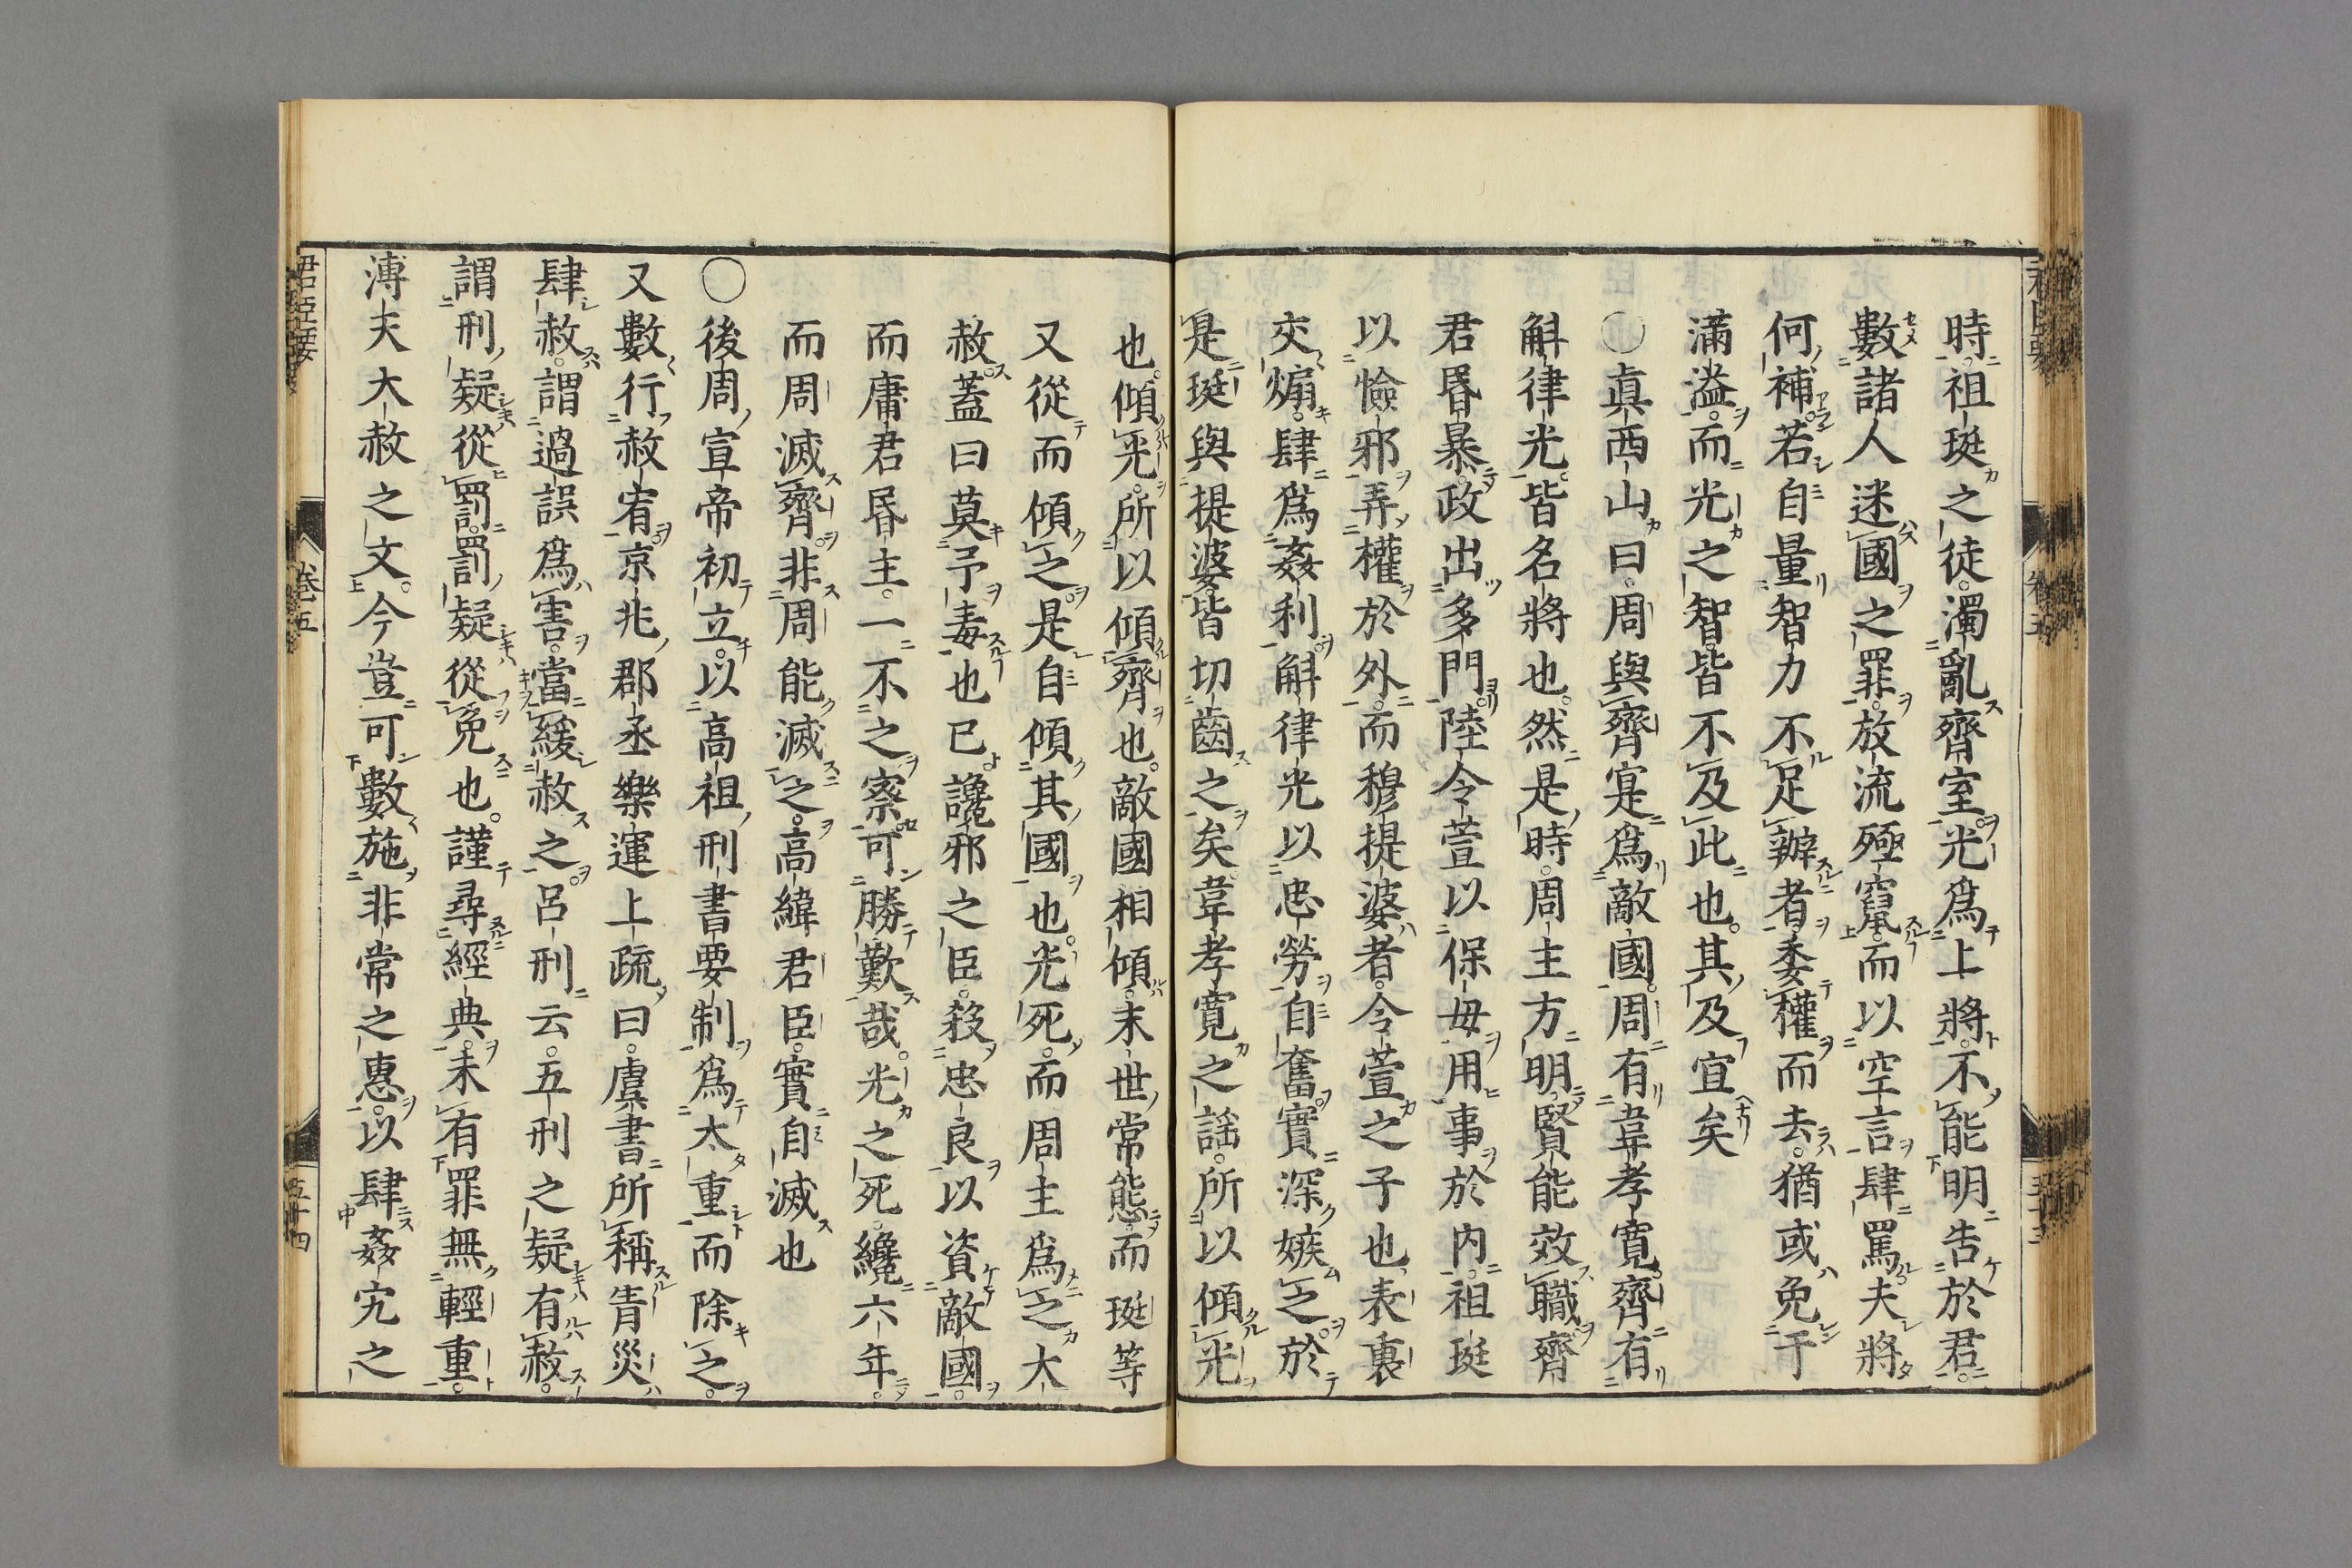 時祖珽之徒濁亂齊室光爲上將不能明告於君
數諸人迷國之罪放流殛竄而以空言肆罵夫將
何補若自量智力不足辦者委權而去猶或免于
滿溢而光之智皆不及此也其及宜矣
〇眞西山曰周與齊寔爲敵國周有韋孝寬齊有
斛律光皆名將也然是時周主方明賢能效職齊
君昬暴政出多門陸令萱以保母用事於内祖珽
以憸邪弄權於外而穆提婆者令萱之子也表裏
交煽肆爲姦利斛律光以忠勞自奮實深嫉之於
是珽與提婆皆切齒之矣韋孝寬之謡所以傾光
也傾光所以傾齊也敵國相傾末世常態而珽等
又從而傾之是自傾其國也光死而周主爲之大
赦蓋曰莫予毒也已讒邪之臣殺忠良以資敵國
而庸君昬主一不之察可勝歎哉光之死纔六年
而周滅齊非周能滅之高緯君臣實自滅也
〇後周宣帝初立以高祖刑書要制爲太重而除之
又數行赦宥京兆郡丞樂運上疏曰虞書所稱眚災
肆赦謂過誤爲害當緩赦之呂刑云五刑之疑有赦
謂刑疑從罰罰疑從免也謹尋經典未有罪無輕重
溥天大赦之文今豈可數施非常之惠以肆姦宄之
君臣要
卷五
五十四